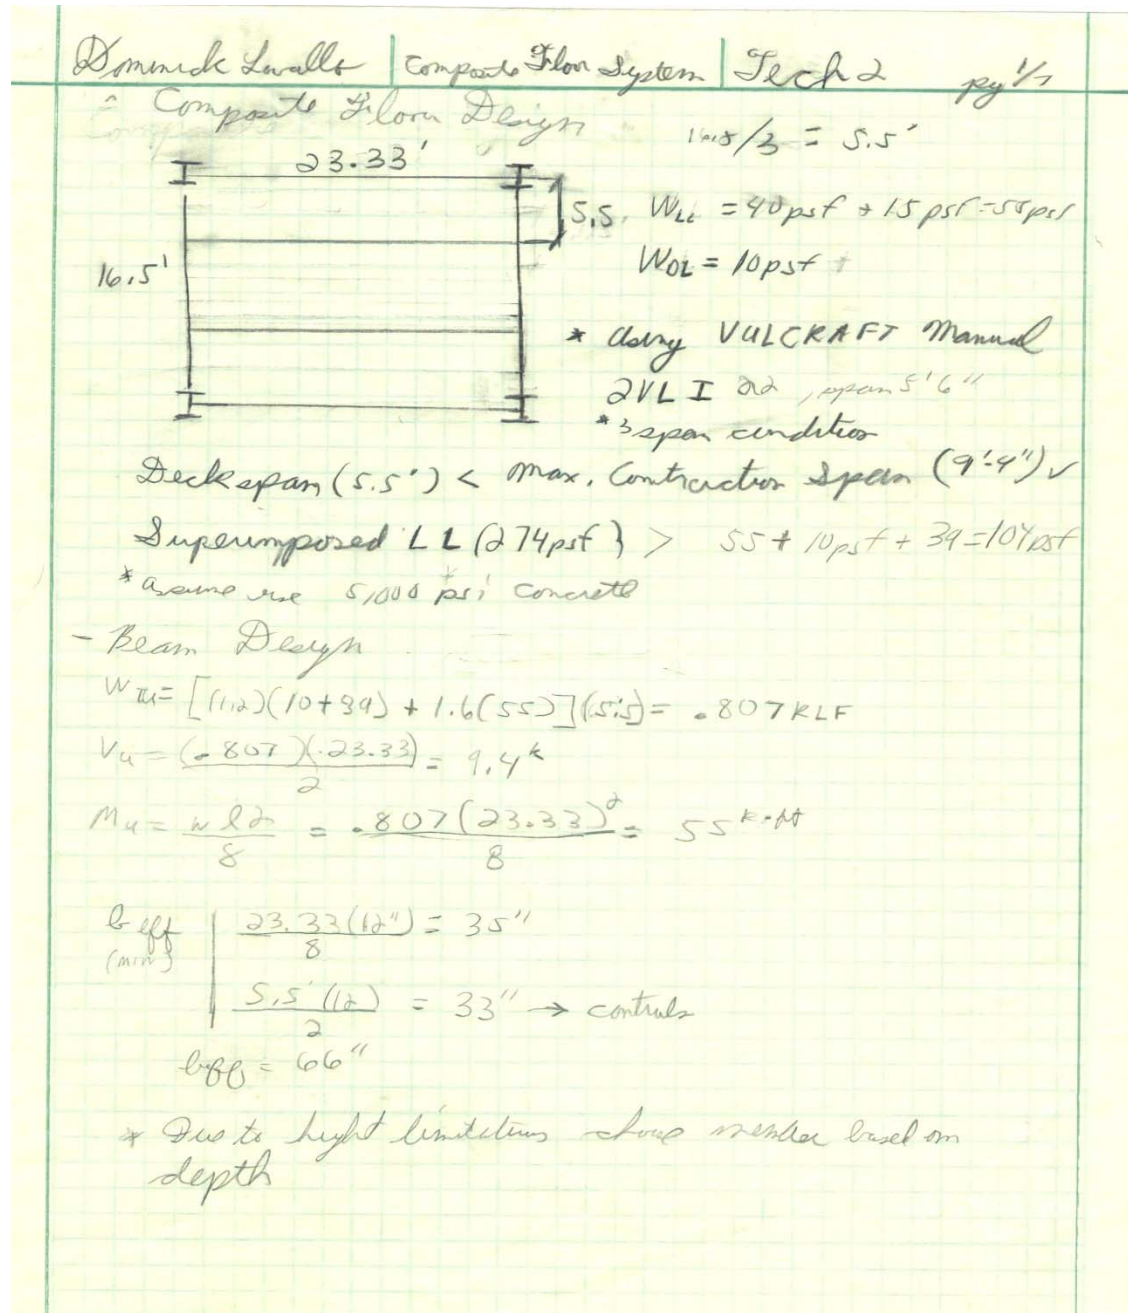 Dominick Lovallo | Composite Floor System | Tech 2 pg 1/
- Composite Floor Design
16.5/3 = 5.5'
23.33'
5.5
W_LL = 40psf + 15psf = 55psf
W_DL = 10psf +
16.5'
* Using VULCRAFT Manual
2VLI 22, span 5'6"
*3 span condition
Deck span (5.5') < Max. Contraction Span (9'-4") ✓
Superimposed LL (274psf) > 55 + 10psf + 39 = 104psf
*assume use 5,000 psi concrete
- Beam Design
W_TU = [(1.2)(10+39) + 1.6(55)](5.5) = .807 KLF
Vu = (.807)(23.33)/2 = 9.4^k
Mu = wl2/8 = .807(23.33)^2/8 = 55^k-ft
beff (min) | 23.33(12")/8 = 35"
5.5'(12)/2 = 33" → controls
beff = 66"
* Due to height limitations chose member based on
depth